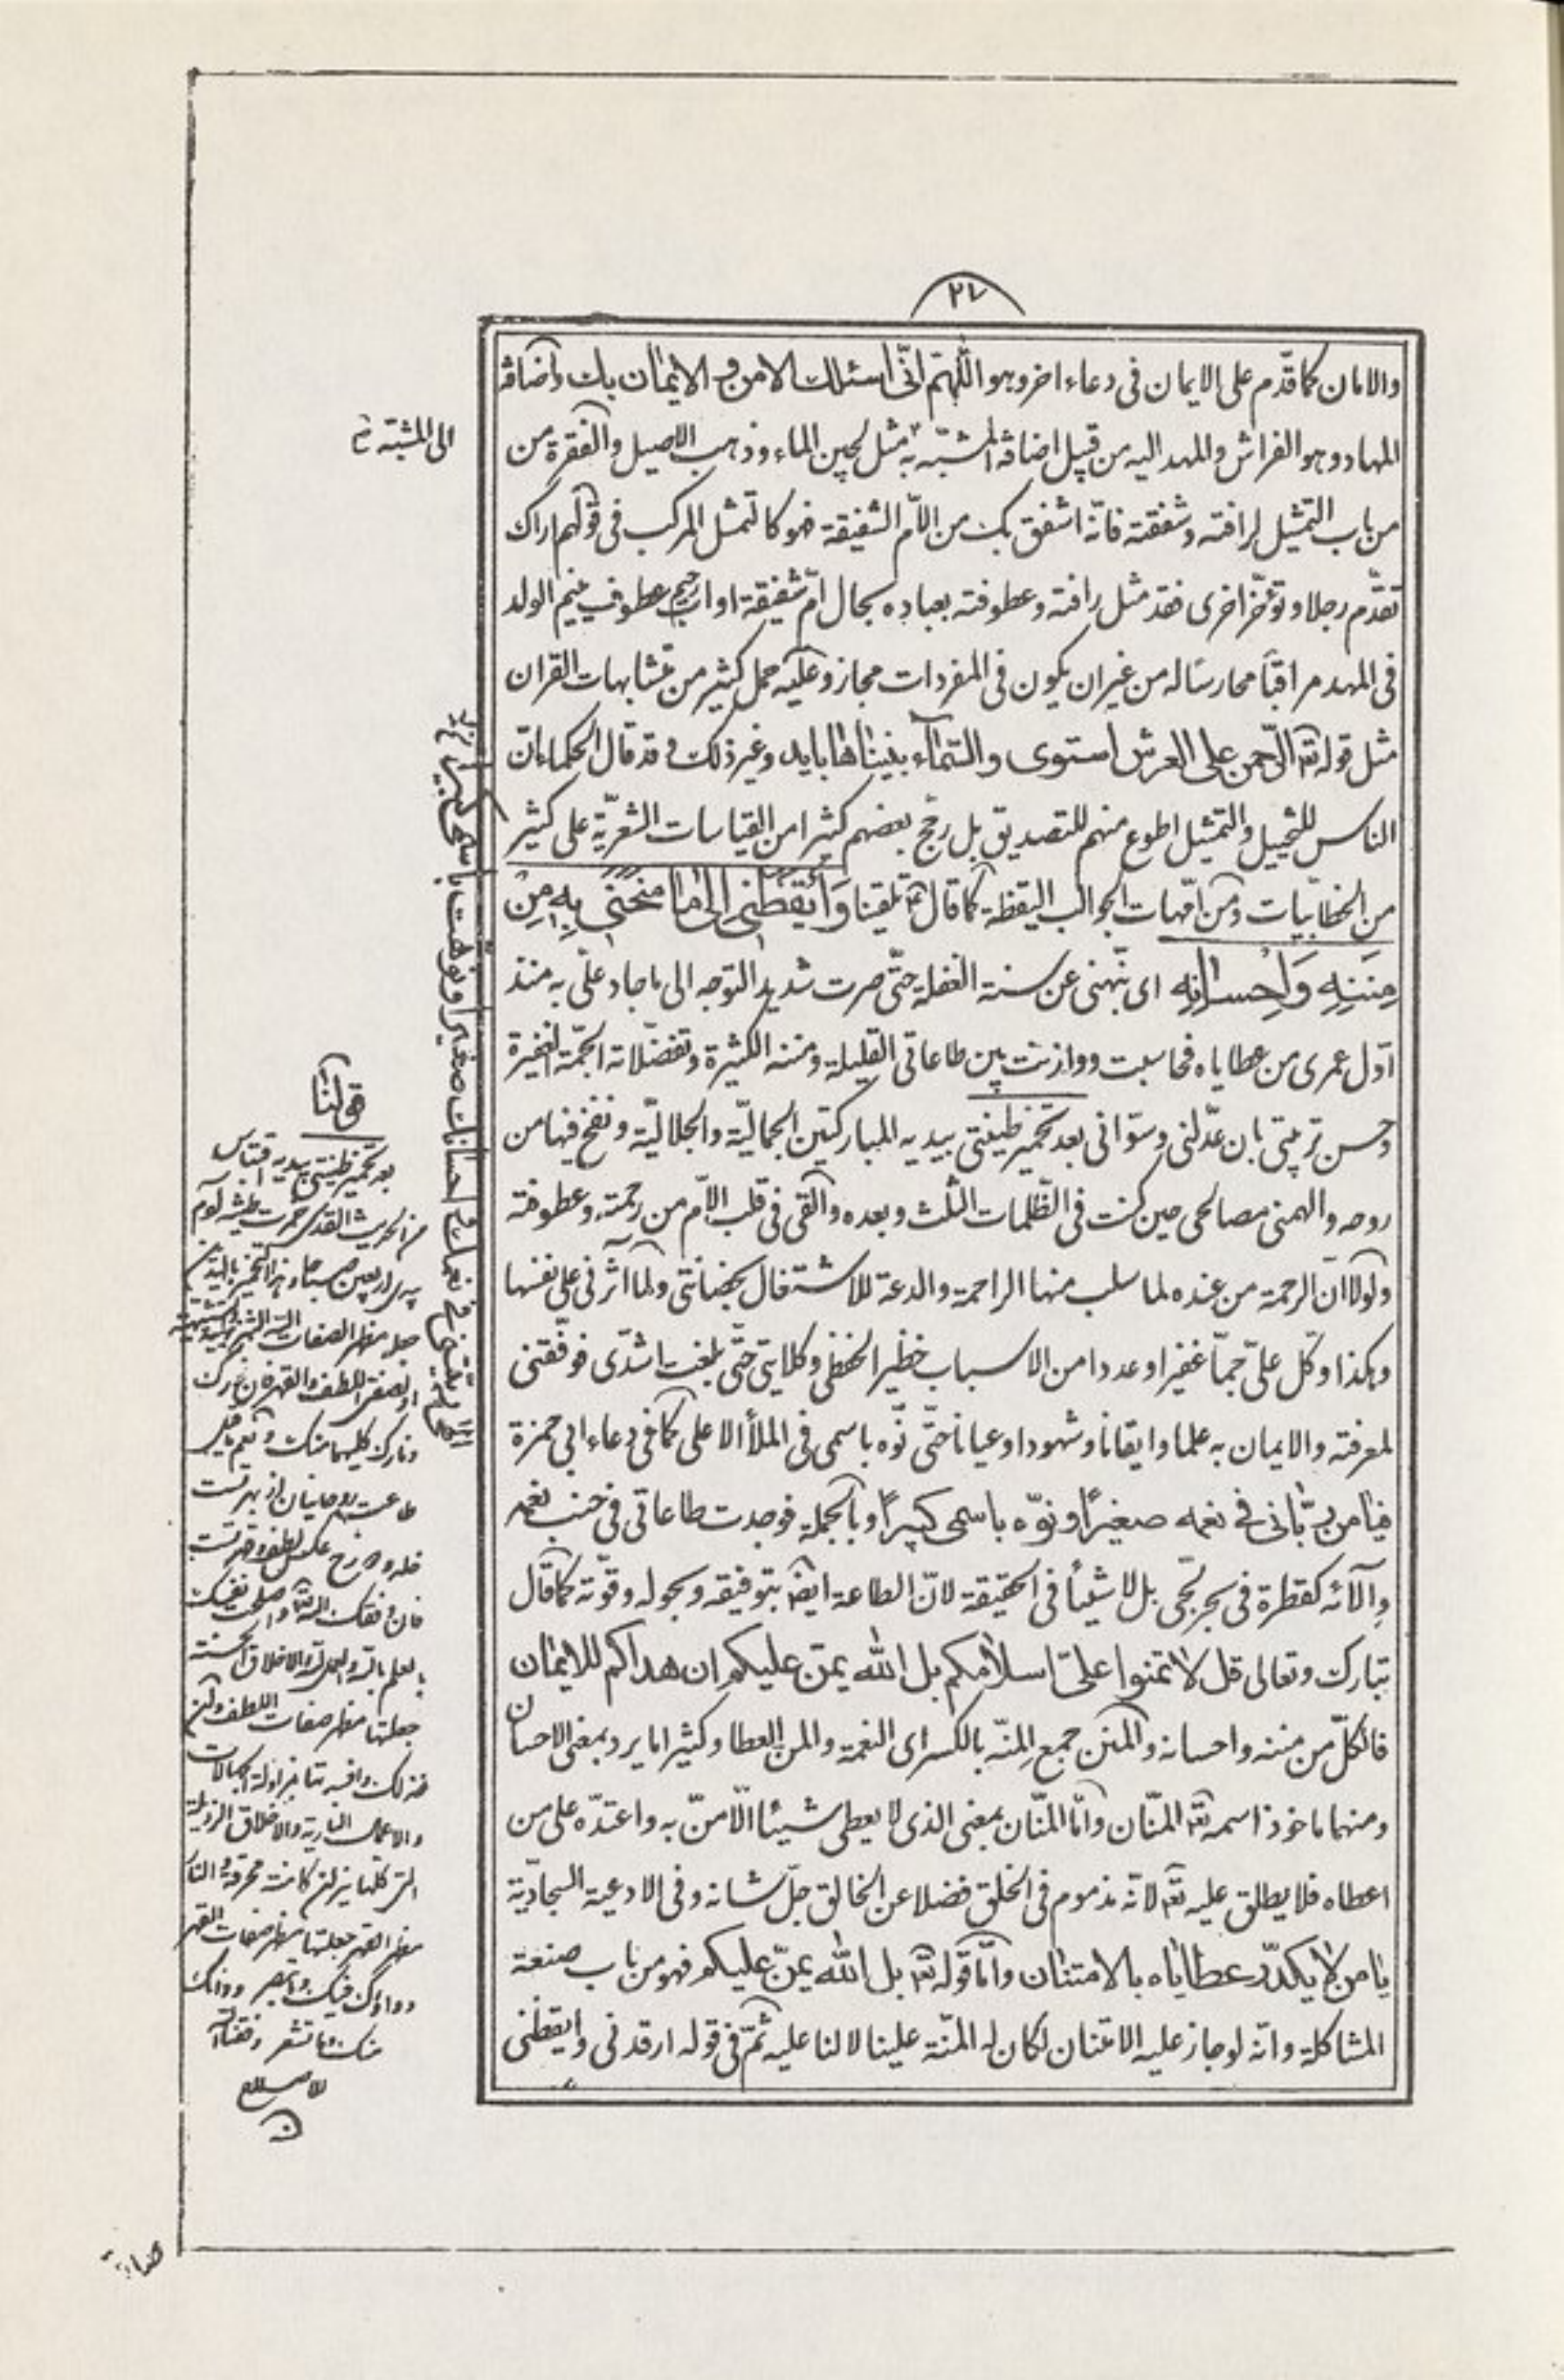 ٢٧
والامان كما قدّم على الايمان فى دعاء اخر وهو اللّهمّ انّى اسئلك الامن و الايمان بك واضافة
المهاد وهو الفراش والمهد اليه من قبيل اضافة المشبّه به مثل لجين الماء وذهب الاصيل والفقرة من
الى المشبّه
من باب التمثيل لرافته وشفقته فانّه اشفق بك من الامّ الشفيقة فهو كالتمثل المركب فى قولهم اراك
تقدّم رجلا وتؤخّر اخرى فقد مثل رافته وعطوفته بعباده بحال امّ شفيقة او اب رحيم عطوف ينيم الولد
فى المهد مراقبا محارسا له من غير ان يكون فى المفردات مجاز وعليه حمل كثير من متشابهات القران
مثل قوله تعہ الرّحمن على العرش استوى والسّماء بنيناها بايد وغير ذلك و قد قال الحكماء انّ
الناس للتخييل والتمثيل اطوع منهم للتصديق بل رجّح بعضهم كثيرا من القياسات الشعريّة على كثير
من الخطابيّات ومن امّهات الجوالب اليقظة كما قال تلقينا وَاَيْقَظَنى اِلى ما مَنَحَنى بِهِ مِنْ
مِنَنِهِ وَاِحْسانِهِ اى نبّهنى عن سنة الغفلة حتّى صرت شديد التوجه الى ما جاد علىّ به منذ
اوّل عمرى من عطاياه فحاسبت ووازنت بين طاعاتى القليلة ومننه الكثيرة وتفضّلاته الجمّة الغفيرة
وحسن تربيتى بان عدّلنى وسوّانى بعد تخمير طينتى بيديه المباركتين الجماليّة والجلاليّة ونفخ فيها من
روحه والهمنى مصالحى حين كنت فى الظّلمات الثلث وبعده والقى فى قلب الامّ من رحمته وعطوفته
ولولا انّ الرحمة من عنده لما سلب منها الراحة والدعة للاشتغال بحضانتى ولما اثرنى على نفسها
وهكذا وكّل علىّ جمّا غفيرا وعددا من الاسباب خطير الحفظى وكلايتى حتّى بلغت اشدّى فوفّقنى
لمعرفته والايمان به علما وايقانا وشهودا وعيانا حتّى نوّه باسمى فى الملأ الاعلى كما فى دعاء ابى حمزة
فيا من ربّانى فى نعمه صغيرًا ونوّه باسمى كبيرًا وبالجملة فوجدت طاعاتى فى جنب نعمه
وآلائه كقطرة فى بحر لجّى بل لا شيئا فى الحقيقة لانّ الطاعة ايضا بتوفيقه وبحوله وقوّته كما قال
تبارك وتعالى قل لا تمنوا علىّ اسلامكم بل الله يمنّ عليكم ان هداكم للايمان
فالكلّ من مننه واحسانه والمنن جمع المنّة بالكسر اى النعمة والمن العطا وكثيرا ما يرد بمعنى الاحسان
ومنها ماخوذ اسمه تعہ المنّان وامّا المنّان بمعنى الذى لا يعطى شيئا الّا منّ به واعتدّه على من
اعطاه فلا يطلق عليه تعہ لانّه مذموم فى الخلق فضلا عن الخالق جلّ شانه وفى الادعية السجاديّة
يا من لا يكدّر عطاياه بالامتنان وامّا قوله تعہ بل الله يمنّ عليكم فهو من باب صنعة
المشاكلة وانّه لو جاز عليه الامتنان لكان له المنّة علينا لا لنا عليه ثمّ فى قوله ارقدنى وايقظنى
قولنا
بعد تخمير طينتى بيديه اقتباس
من الحديث القدسى خمرت طينة آدم
بيدى اربعين صباحا
مظهر الصفات
طاعت روحانيان از بهر تست
خلد ودوزخ عكس لطف وقهر تست
بالعلم بالله والاخلاق الحسنة
جعلتها مظهر صفات اللطف
والاخلاق الرذيلة
مظهر القهر جعلتها مظهر صفات القهر
دواؤك فيك وما تبصر ودائك
منك وما تشعر